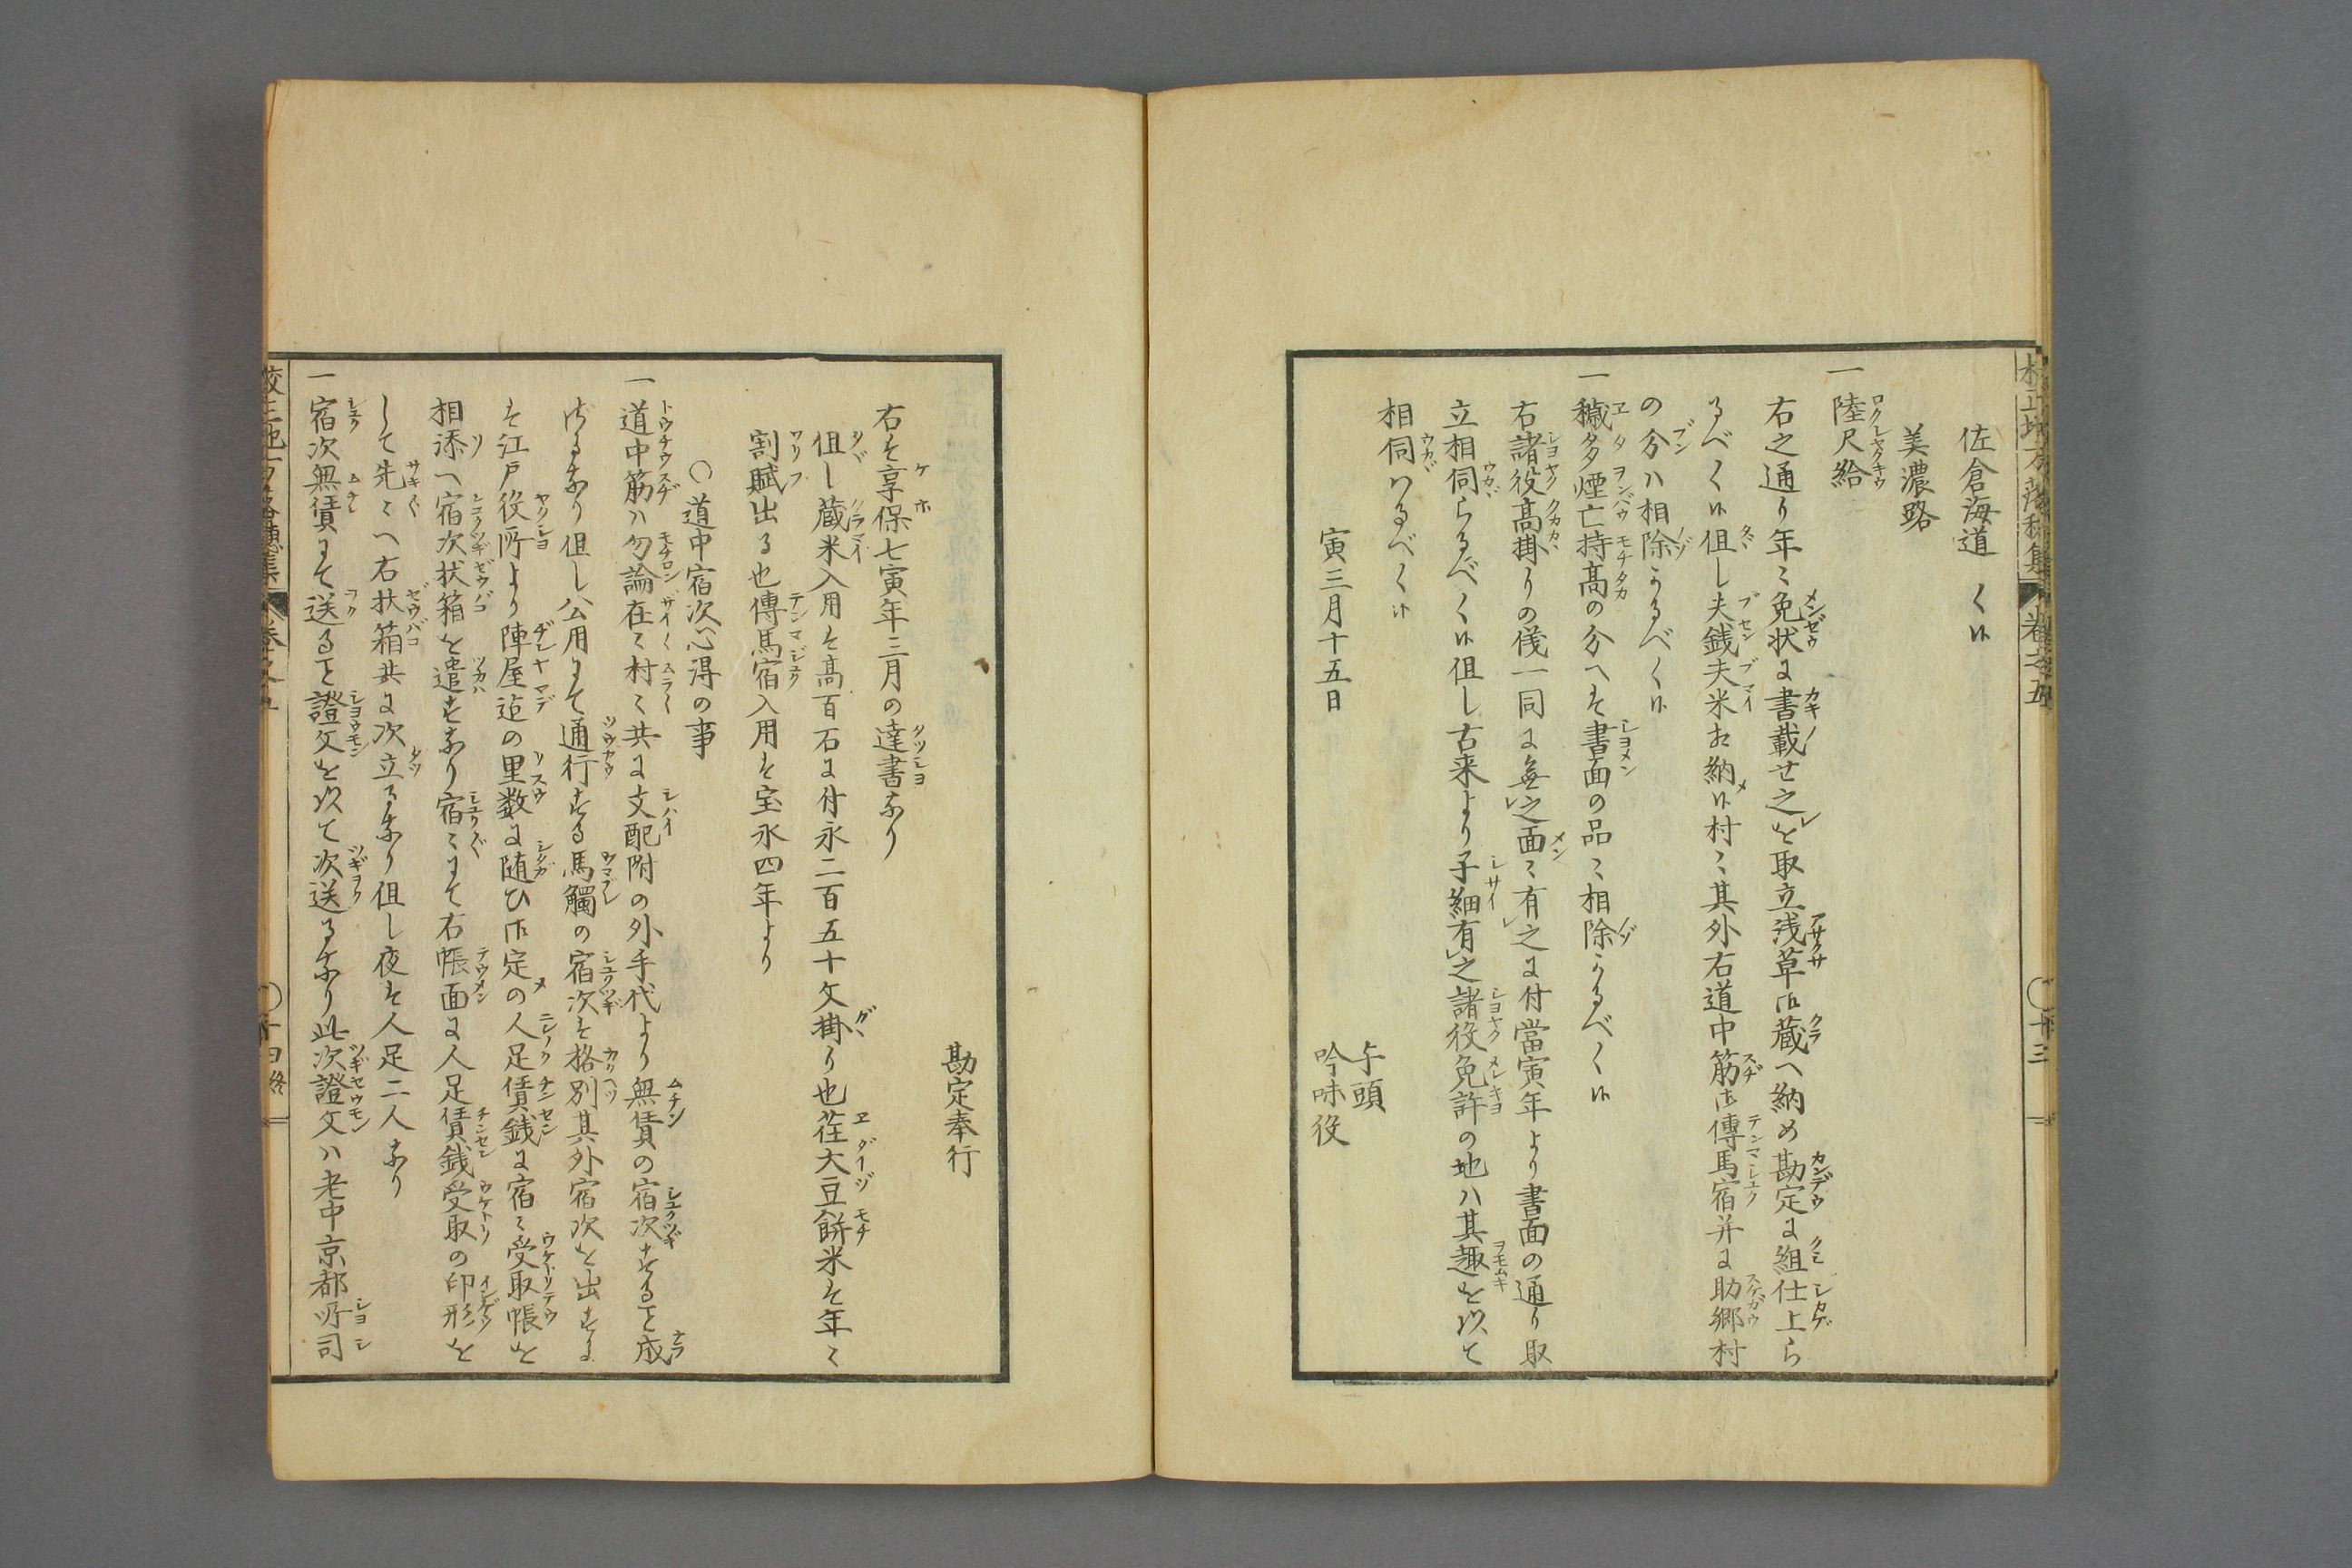 佐倉海道 〱
美濃路
一陸尺給
右之通り年〻免状に書載せ之を取立浅草御蔵へ納め勘定に組仕上ら
るべく候但し夫銭夫米お納候村〻其外右道中筋御傳馬宿并に助郷村
の分ハ相除かるべく候
一穢多煙亡持高の分へは書面の品〻相除かるべく候
右諸役高掛りの儀一同に無之面〻有之に付當寅年より書面の通り取
立相伺らるべく候但し古来より子細有之諸役免許の地ハ其趣を以て
相伺ハるべく候
寅三月十五日
与頭
吟味役
勘定奉行
右は享保七寅年三月の達書なり
但し蔵米入用は高百石に付永二百五十文掛り也荏大豆餅米は年〻
割賦出る也傳馬宿入用は宝永四年より
○道中宿次心得の事
一道中筋ハ勿論在〻村〻共に支配附の外手代より無賃の宿次する事成
ざるなり但し公用にて通行する馬觸の宿次は格別其外宿次を出すに
は江戸役所より陣屋迄の里数に随ひ御定の人足賃銭に宿〻受取帳を
相添へ宿次状箱を遣すなり宿〻にて右帳面に人足賃銭受取の印形を
して先〻へ右状箱共に次立るなり但し夜は人足二人なり
一宿次無賃にて送る事證文を以て次送るなり此次證文ハ老中京都所司